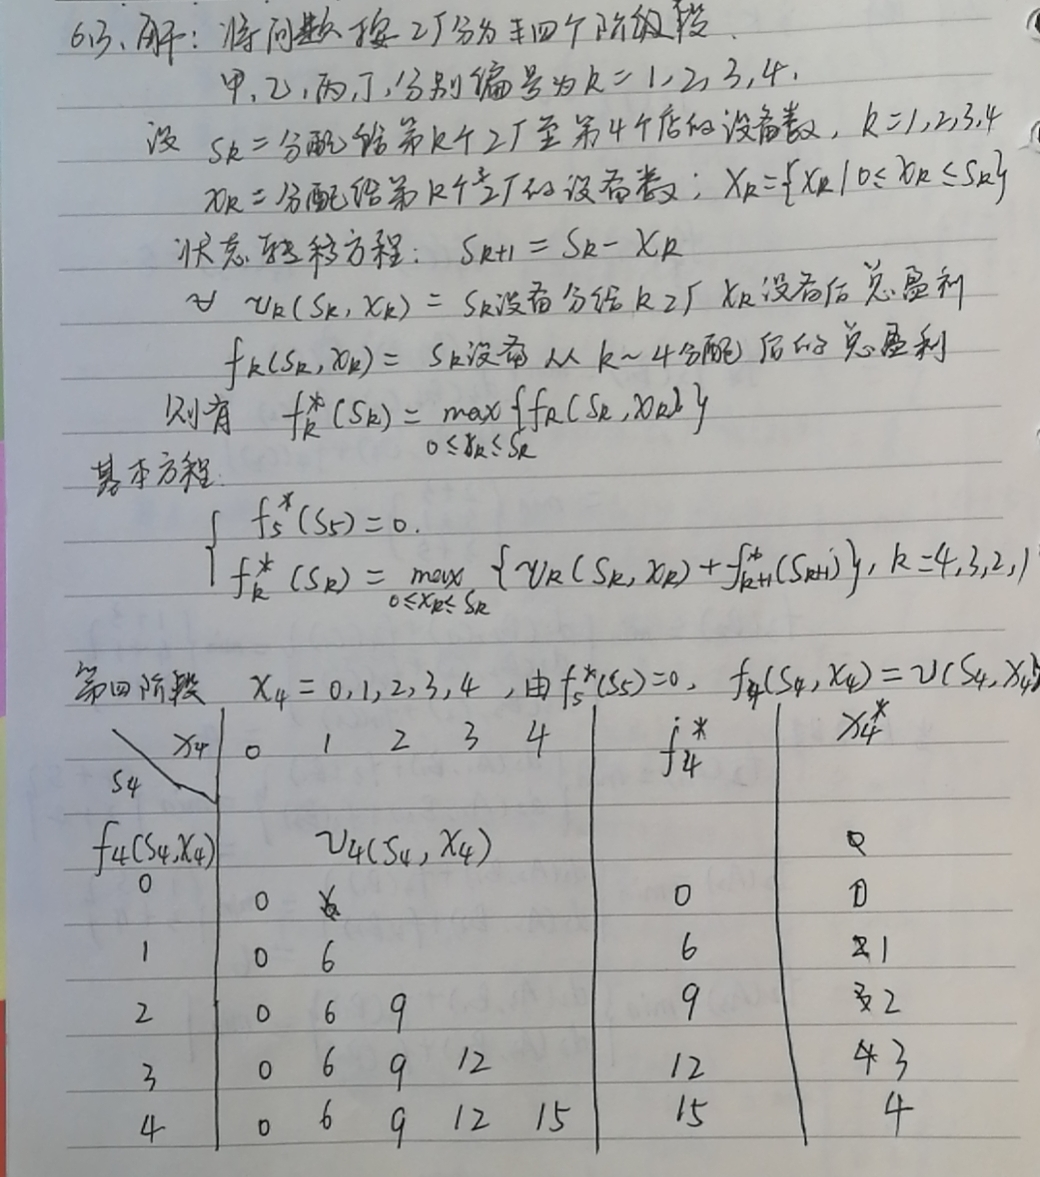 6.3、解：将问题按工厂分为四个阶段.
甲、乙、丙、丁、分别编号为k=1,2,3,4.
设 Sk=分配给第k个工厂至第4个店的设备数，k=1,2,3,4
xk=分配给第k个工厂的设备数；Xk={xk|0≤xk≤Sk}
状态转移方程：Sk+1=Sk-xk
vk(Sk,xk)=Sk设备分给k工厂xk设备后总盈利
fk(Sk,xk)=Sk设备从k~4分配后的总盈利
则有 fk*(Sk)=max{fk(Sk,xk)}
0≤xk≤Sk
基本方程.
f5*(S5)=0.
fk*(Sk)=max{vk(Sk,xk)+fk+1*(Sk+1)}, k=4,3,2,1
0≤xk≤Sk
第四阶段 x4=0,1,2,3,4，由f5*(S5)=0, f4(S4,x4)=v(S4,x4)
x4 0 1 2 3 4 f4* x4*
S4
f4(S4,x4) v4(S4,x4)
0 0 0 0
1 0 6 6 1
2 0 6 9 9 2
3 0 6 9 12 12 3
4 0 6 9 12 15 15 4